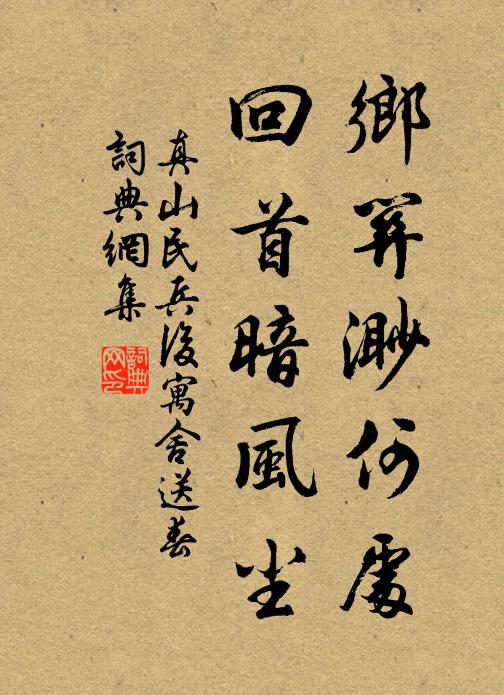 鄉關渺何處
回首暗風塵
真山民兵後寓舍送春
詞典網集
詞典网印